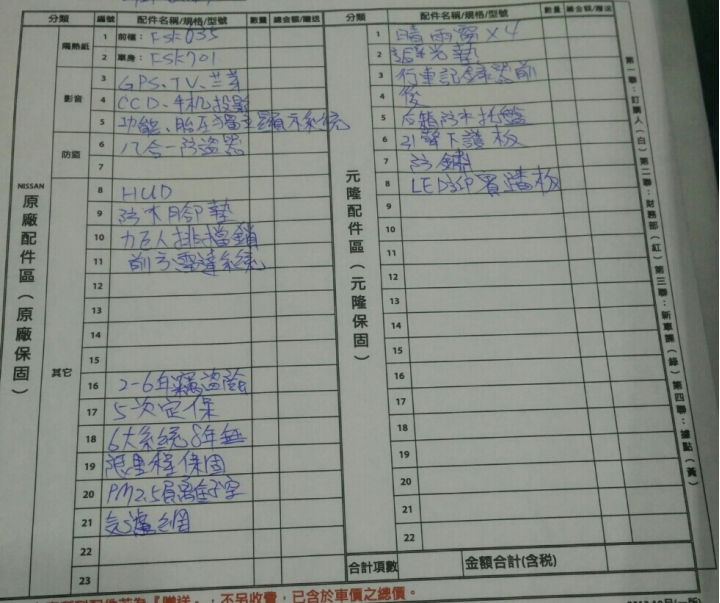 分類 編號 配件名稱/規格/型號 數量 總金額/贈送
NISSAN 原廠配件區（原廠保固）
隔熱紙
1 前檔：FSK035
2 車身：FSK701
影音
3 GPS、TV、藍芽
4 CCD、手机投影
5 功能、胎压獨立顯示系統
防盜
6 八合一防盜器
7
其它
8 HUD
9 防水腳墊
10 力巨人排擋鎖
11 前方雷達系統
12
13
14
15
16 2-6年竊盜險
17 5次定保
18 6大系統8年無
19 限里程保固
20 PM2.5負離子空
21 氣濾網
22
23
分類 配件名稱/規格/型號 數量 總金額/贈送
元隆配件區（元隆保固）
1 晴雨窗x4
2 避光墊
3 行車記錄器前
4 後
5 后箱防水托盤
6 引擎下護板
7 防鏽
8 LED迎賓踏板
9
10
11
12
13
14
15
16
17
18
19
20
21
22
合計項數 金額合計(含税)
第一聯：訂購人（白）第二聯：財務部（紅）第三聯：新車課（綠）第四聯：據點（黃）
『贈送』，不另收費，已含於車價之總價。